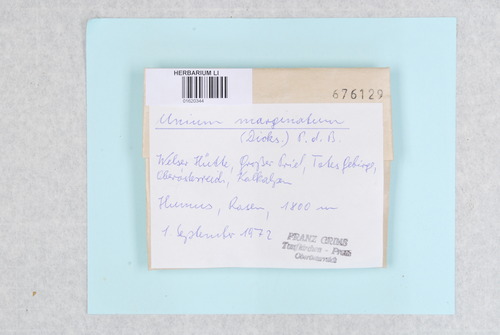 HERBARIUM LI
01020344
676129
Mnium marginatum
(Dicks.) P. d. B.
Welser Hütte, Großer Priel, Totes Gebirge,
Oberösterreich, Kalkalpen
Humus, Rasen, 1800 m
1 September 1972
FRANZ GRIMS
Taufkirchen - Pram
Oberösterreich